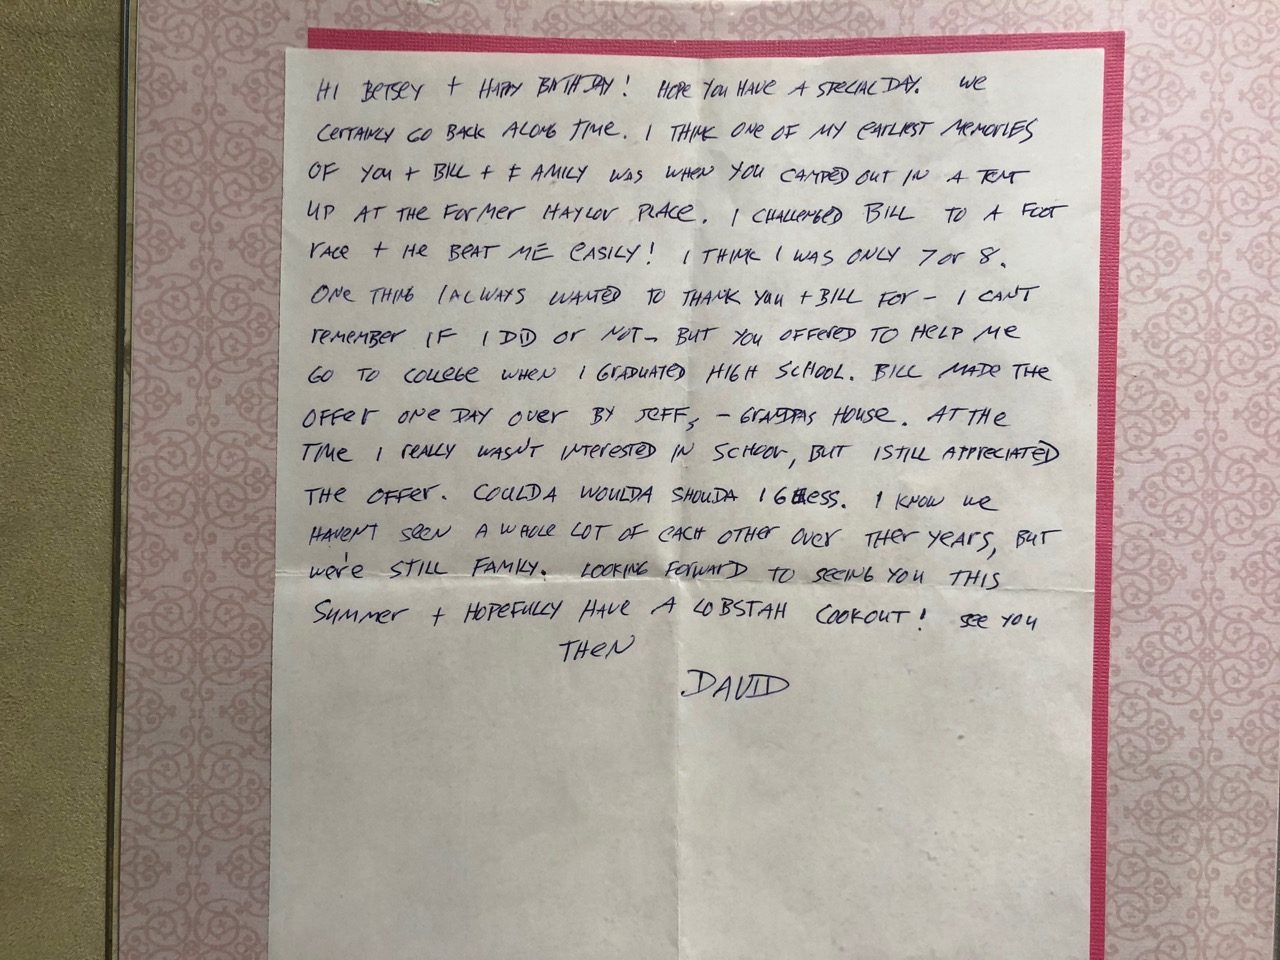 HI BETSEY + HAPPY BIRTHDAY! HOPE YOU HAVE A SPECIAL DAY. WE
CERTAINLY GO BACK ALONG TIME. I THINK ONE OF MY EARLIEST MEMORIES
OF YOU + BILL + FAMILY WAS WHEN YOU CAMPED OUT IN A TENT
UP AT THE FORMER PLACE. I CHALLENGED BILL TO A FOOT
RACE + HE BEAT ME EASILY! I THINK I WAS ONLY 7 OR 8.
ONE THING I ALWAYS WANTED TO THANK YOU + BILL FOR - I CAN'T
REMEMBER IF I DID OR NOT - BUT YOU OFFERED TO HELP ME
GO TO COLLEGE WHEN I GRADUATED HIGH SCHOOL. BILL MADE THE
OFFER ONE DAY OVER BY JEFF'S - GRANDPAS HOUSE. AT THE
TIME I REALLY WASN'T INTERESTED IN SCHOOL, BUT I STILL APPRECIATED
THE OFFER. COULDA WOULDA SHOULDA I GUESS. I KNOW WE
HAVEN'T SEEN A WHOLE LOT OF EACH OTHER OVER THER YEARS, BUT
WE'RE STILL FAMILY. LOOKING FORWARD TO SEEING YOU THIS
SUMMER + HOPEFULLY HAVE A LOBSTAH COOKOUT! SEE YOU
THEN
DAVID